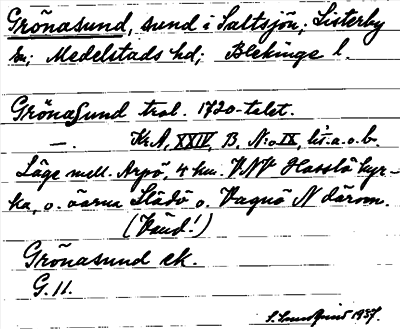 Grönasund, sund i Saltsjön; Listerby
sn; Medelstads hd; Blekinge l.
Grönasund trol. 1720-talet.
—. Kr.A, XXIV, B, N:o IX, lit. a.o.b.
Läge mell. Arpö, 4 km. VNV Hasslö kyr-
ka, o. öarna Slädö o. Vagnö N därom.
(Vänd!)
Grönasund ek.
G. 11.
1937.